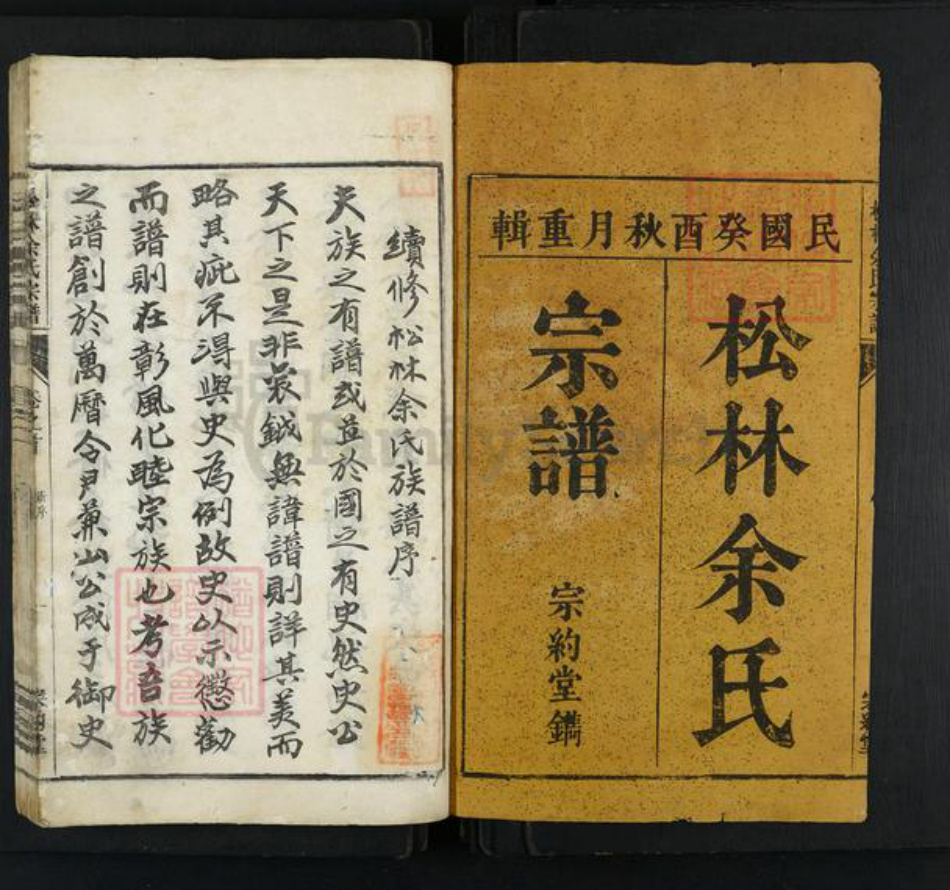 民國癸酉秋月重輯
松林余氏
宗譜
宗約堂鐫
續修松林余氏族譜序
夫族之有譜或並於國之有史然史公
天下之是非袞鉞無諱譜則詳其美而
略其疵不得與史為例故史以示懲勸
而譜則在彰風化睦宗族也考吾族
之譜創於萬曆令尹兼山公成于御史
林余氏宗譜